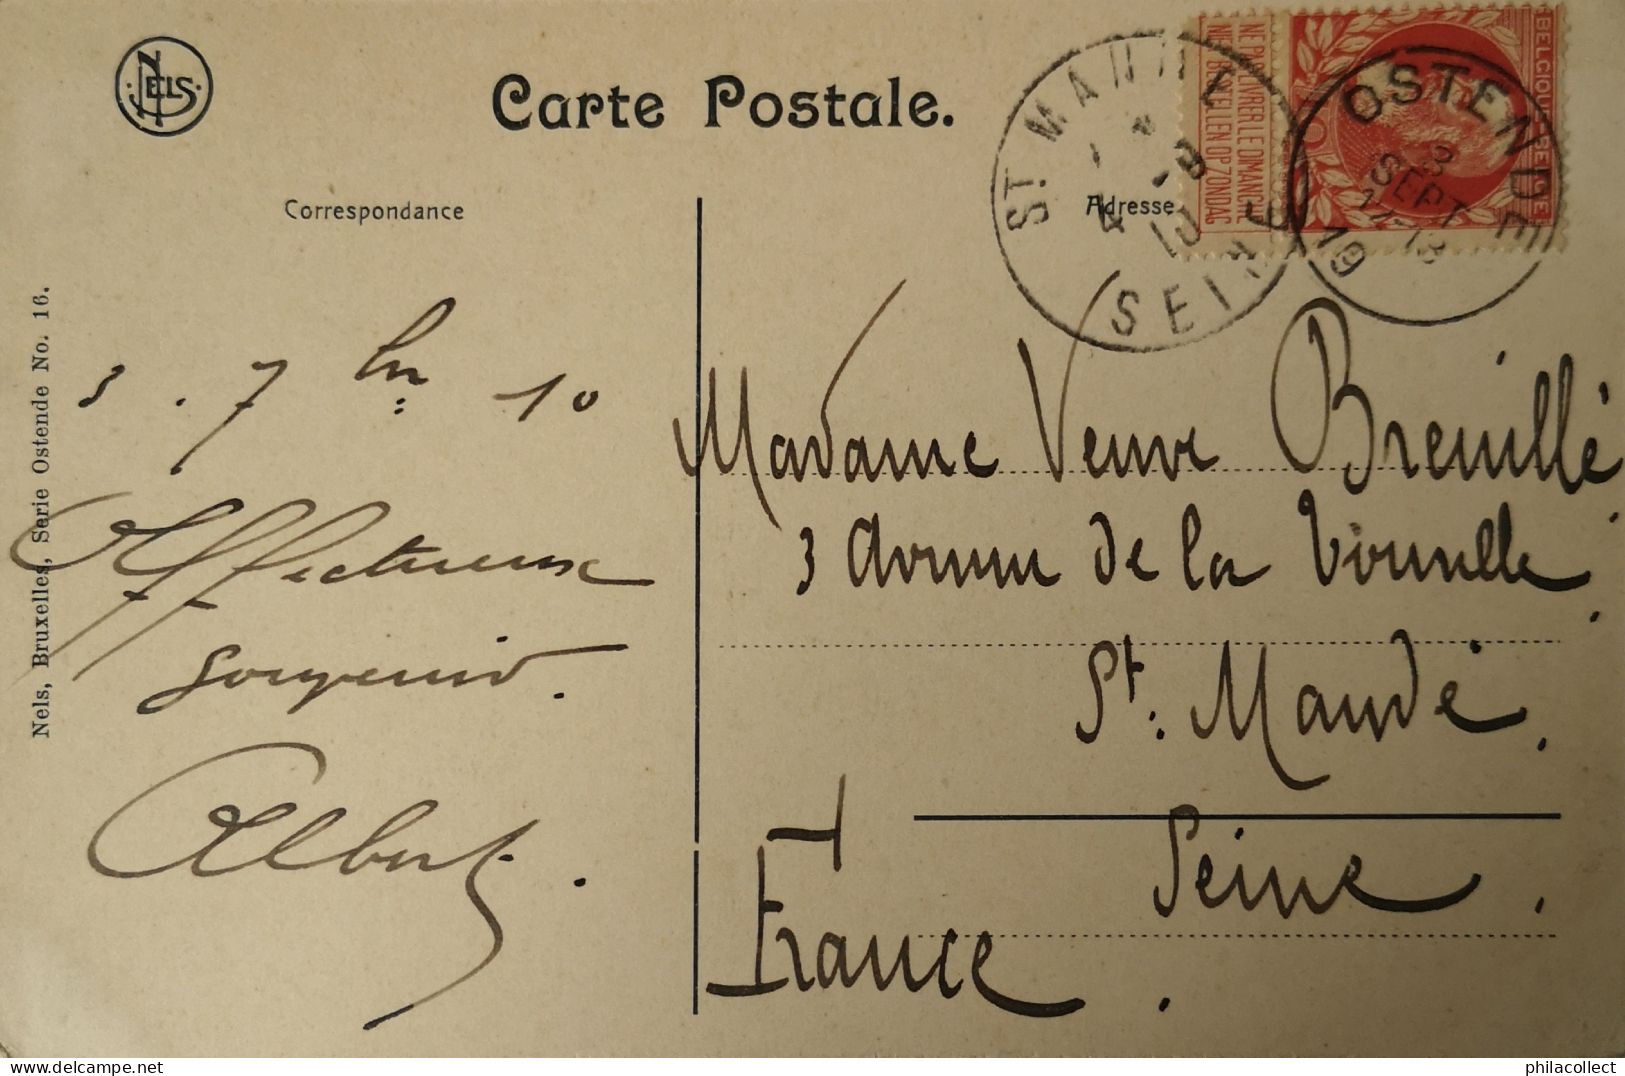 NELS
Carte Postale.
Correspondance
Adresse
NE PAS LIVRER LE DIMANCHE
NIET BESTELLEN OP ZONDAG
BELGIQUE
OSTENDE
3
SEPT
17-18
19
ST MANDE
4 - 9
10
SEINE
Nels, Bruxelles, Serie Ostende No. 16.
3 . 7bre 10
Affectueux
souvenir.
Albert.
Madame Veuve Breuillé
3 Avenue de la Tourelle.
St. Mandé.
Seine.
France.
Delcampe.net
philacollect